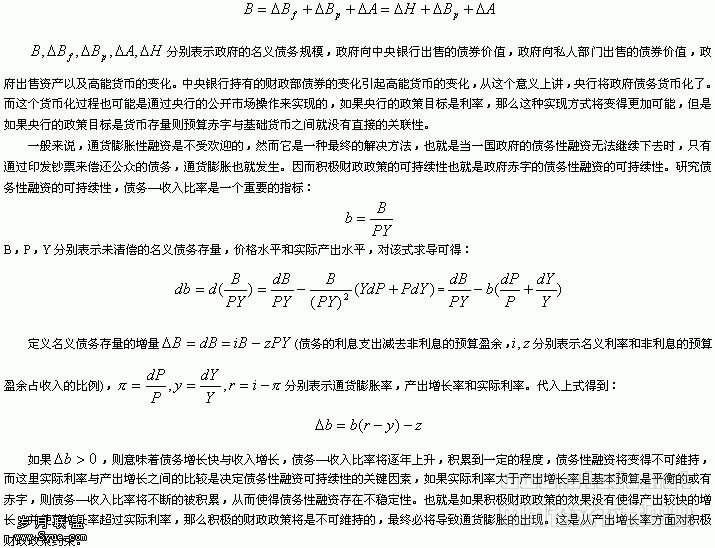 B = ΔB_f + ΔB_p + ΔA = ΔH + ΔB_p + ΔA
B, ΔB_f, ΔB_p, ΔA, ΔH 分别表示政府的名义债务规模，政府向中央银行出售的债券价值，政府向私人部门出售的债券价值，政
府出售资产以及高能货币的变化。中央银行持有的财政部债券的变化引起高能货币的变化，从这个意义上讲，央行将政府债务货币化了。
而这个货币化过程也可能是通过央行的公开市场操作来实现的，如果央行的政策目标是利率，那么这种实现方式将变得更加可能，但是
如果央行的政策目标是货币存量则预算赤字与基础货币之间就没有直接的关联性。
一般来说，通货膨胀性融资是不受欢迎的，然而它是一种最终的解决方法，也就是当一国政府的债务性融资无法继续下去时，只有
通过印发钞票来偿还公众的债务，通货膨胀也就发生。因而积极财政政策的可持续性也就是政府赤字的债务性融资的可持续性。研究债
务性融资的可持续性，债务—收入比率是一个重要的指标：
b = B/PY
B，P，Y 分别表示未清偿的名义债务存量，价格水平和实际产出水平，对该式求导可得：
db = d(B/PY) = dB/PY − B/(PY)²(YdP + PdY) = dB/PY − b(dP/P + dY/Y)
定义名义债务存量的增量 ΔB = dB = iB − zPY (债务的利息支出减去非利息的预算盈余，i, z 分别表示名义利率和非利息的预算
盈余占收入的比例)，π = dP/P, y = dY/Y, r = i − π 分别表示通货膨胀率，产出增长率和实际利率。代入上式得到：
Δb = b(r − y) − z
如果 Δb > 0，则意味着债务增长快与收入增长，债务—收入比率将逐年上升，积累到一定的程度，债务性融资将变得不可维持，
而这里实际利率与产出增长之间的比较是决定债务性融资可持续性的关键因素，如果实际利率大于产出增长率且基本预算是平衡的或有
赤字，则债务—收入比率将不断的被积累，从而使得债务性融资存在不稳定性。也就是如果积极财政政策的效果没有使得产出较快的增
长，率超过实际利率，那么积极的财政政策将是不可维持的，最终必将导致通货膨胀的出现。这是从产出增长率方面对积极
财政政策约束。
岁月联盟
www.Syue.com